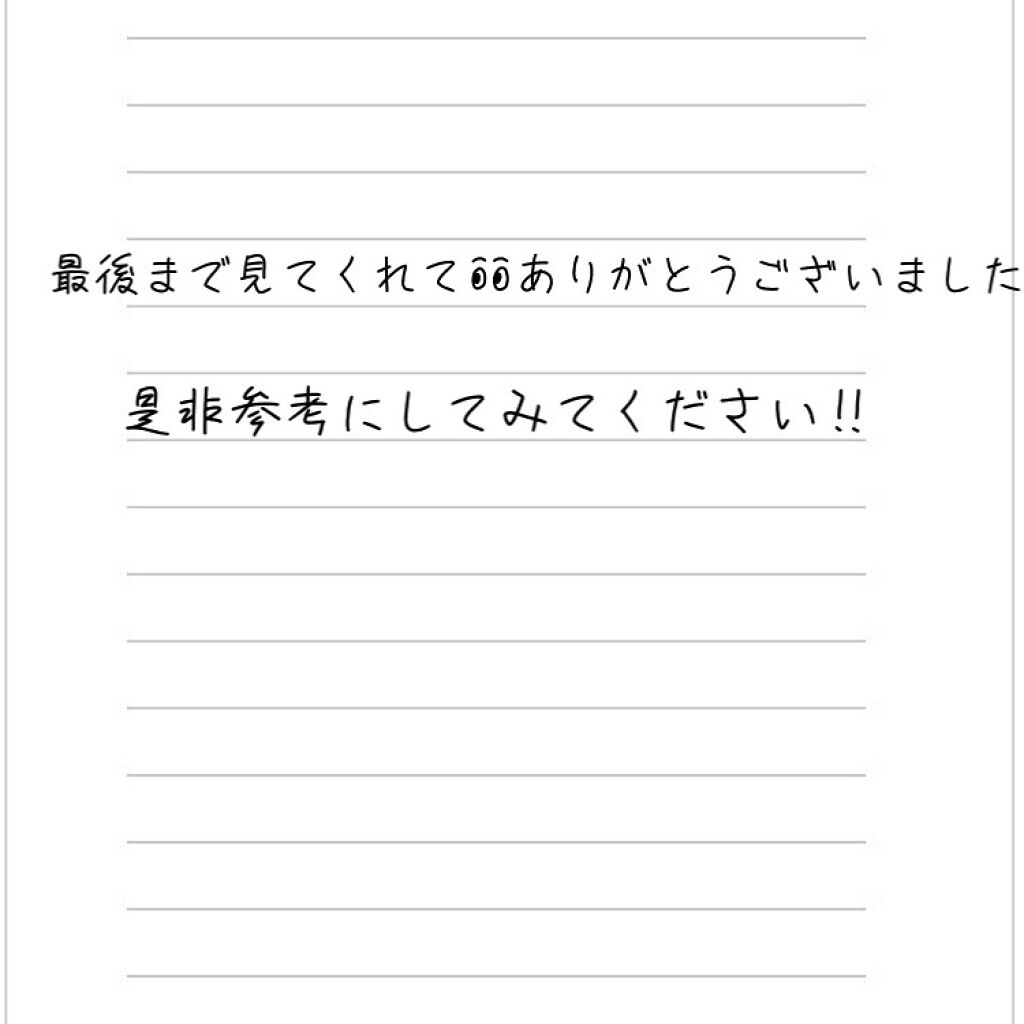 最後まで見てくれて👀ありがとうございました
是非参考にしてみてください!!